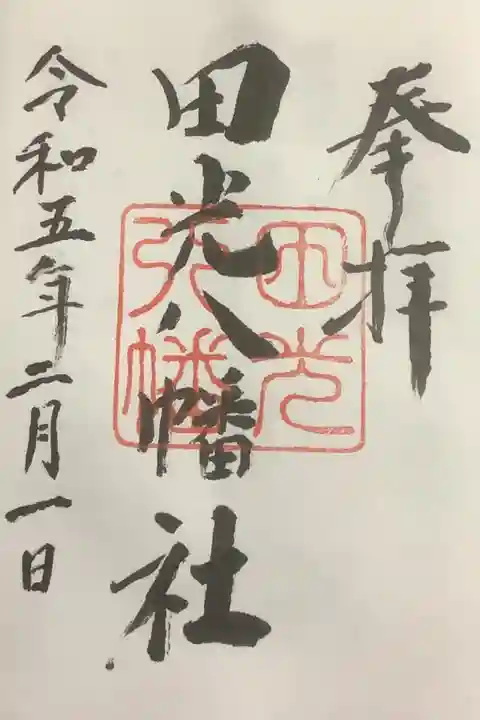 奉拝
田光八幡社
田光八幡
令和五年二月一日